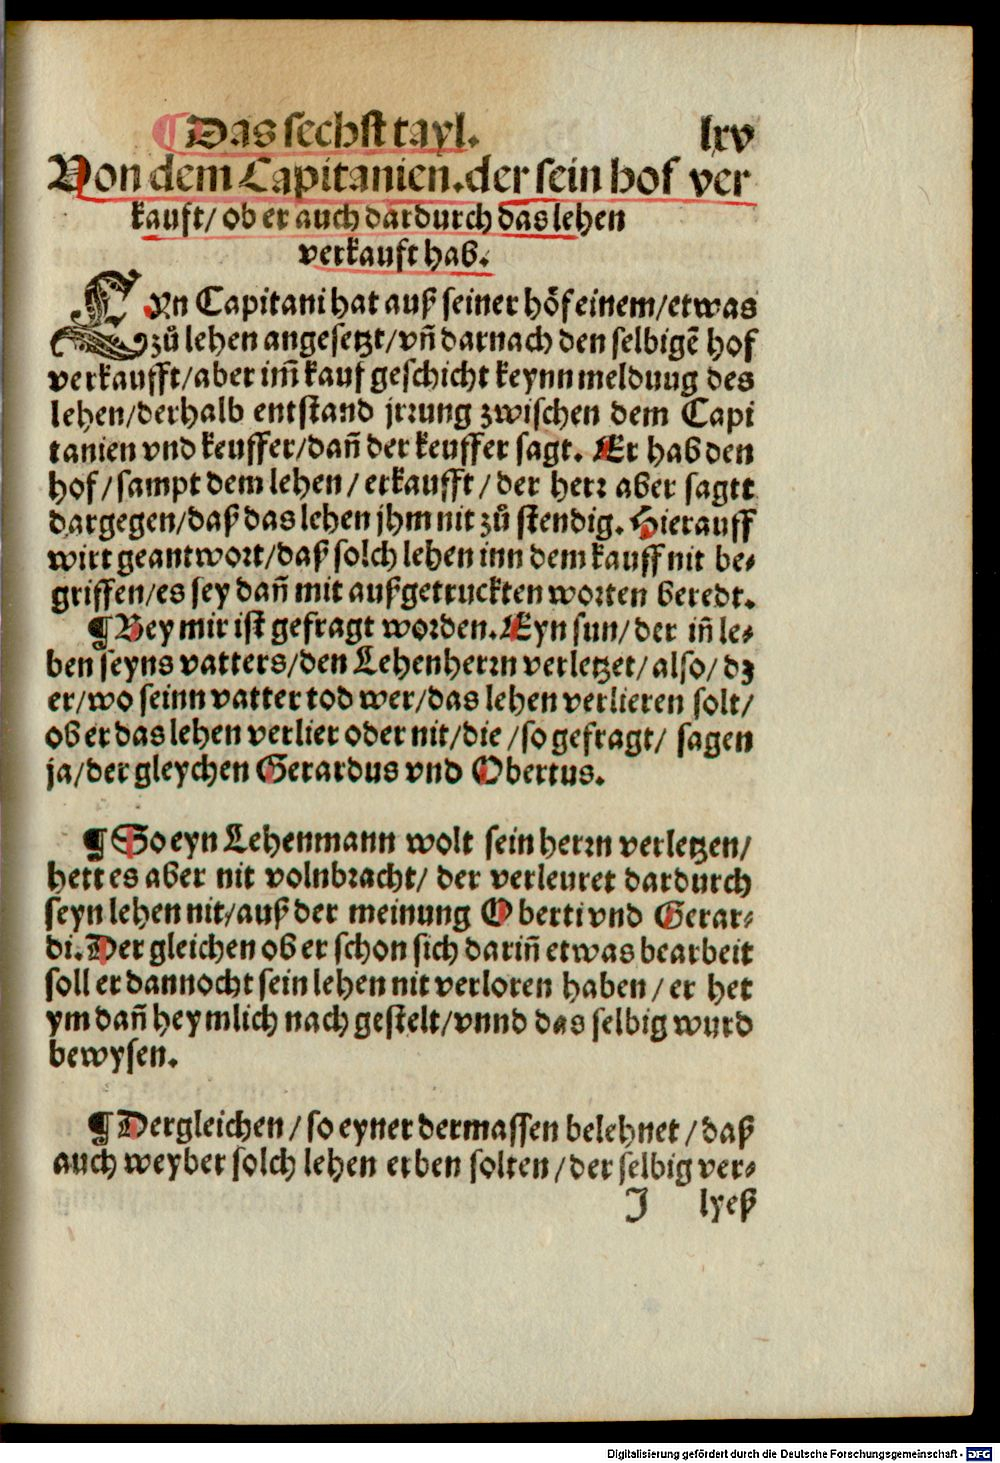 ¶ Das sechst tayl. lxv
Von dem Capitanien. der sein hof ver
kauft/ ob er auch dardurch das lehen
verkauft hab.
EYn Capitani hat auß seiner höf einem/etwas
zů lehen angesetzt/vñ darnach den selbigẽ hof
verkaufft/aber im̃ kauf geschicht keynn meldung des
lehen/derhalb entstand jrrung zwischen dem Capi
tanien vnd keuffer/dañ der keuffer sagt. Er hab den
hof/sampt dem lehen/ erkaufft/der herr aber sagtt
dargegen/daß das lehen jhm nit zů stendig. Hierauff
wirt geantwort/daß solch lehen inn dem kauff nit be-
griffen/es sey dañ mit außgetruckten worten beredt.
¶ Bey mir ist gefragt worden. Eyn sun/der iñ le-
ben seyns vatters/den Lehenherrn verletzet/also/dz
er/wo seinn vatter tod wer/das lehen verlieren solt/
ob er das lehen verlier oder nit/die/so gefragt/ sagen
ja/der gleychen Gerardus vnd Obertus.
¶ So eyn Lehenmann wolt sein herrn verletzen/
hett es aber nit volnbracht/ der verleuret dardurch
seyn lehen nit/auß der meinung Oberti vnd Gerar-
di. Der gleichen ob er schon sich dariñ etwas bearbeit
soll er dannocht sein lehen nit verloren haben/ er het
ym dañ heymlich nach gestelt/vnnd das selbig wurd
bewysen.
¶ Dergleichen/so eyner dermassen belehnet/daß
auch weyber solch lehen erben solten/der selbig ver-
J lyeß
Digitalisierung gefördert durch die Deutsche Forschungsgemeinschaft - DFG